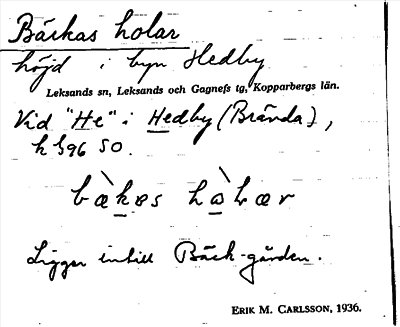 Bäckas holar
höjd i byn Hedby
Leksands sn, Leksands och Gagnefs tg, Kopparbergs län.
Vid "He" i Hedby (Brända),
SO.
Ligger intill Bäck-gården.
ERIK M. CARLSSON, 1936.